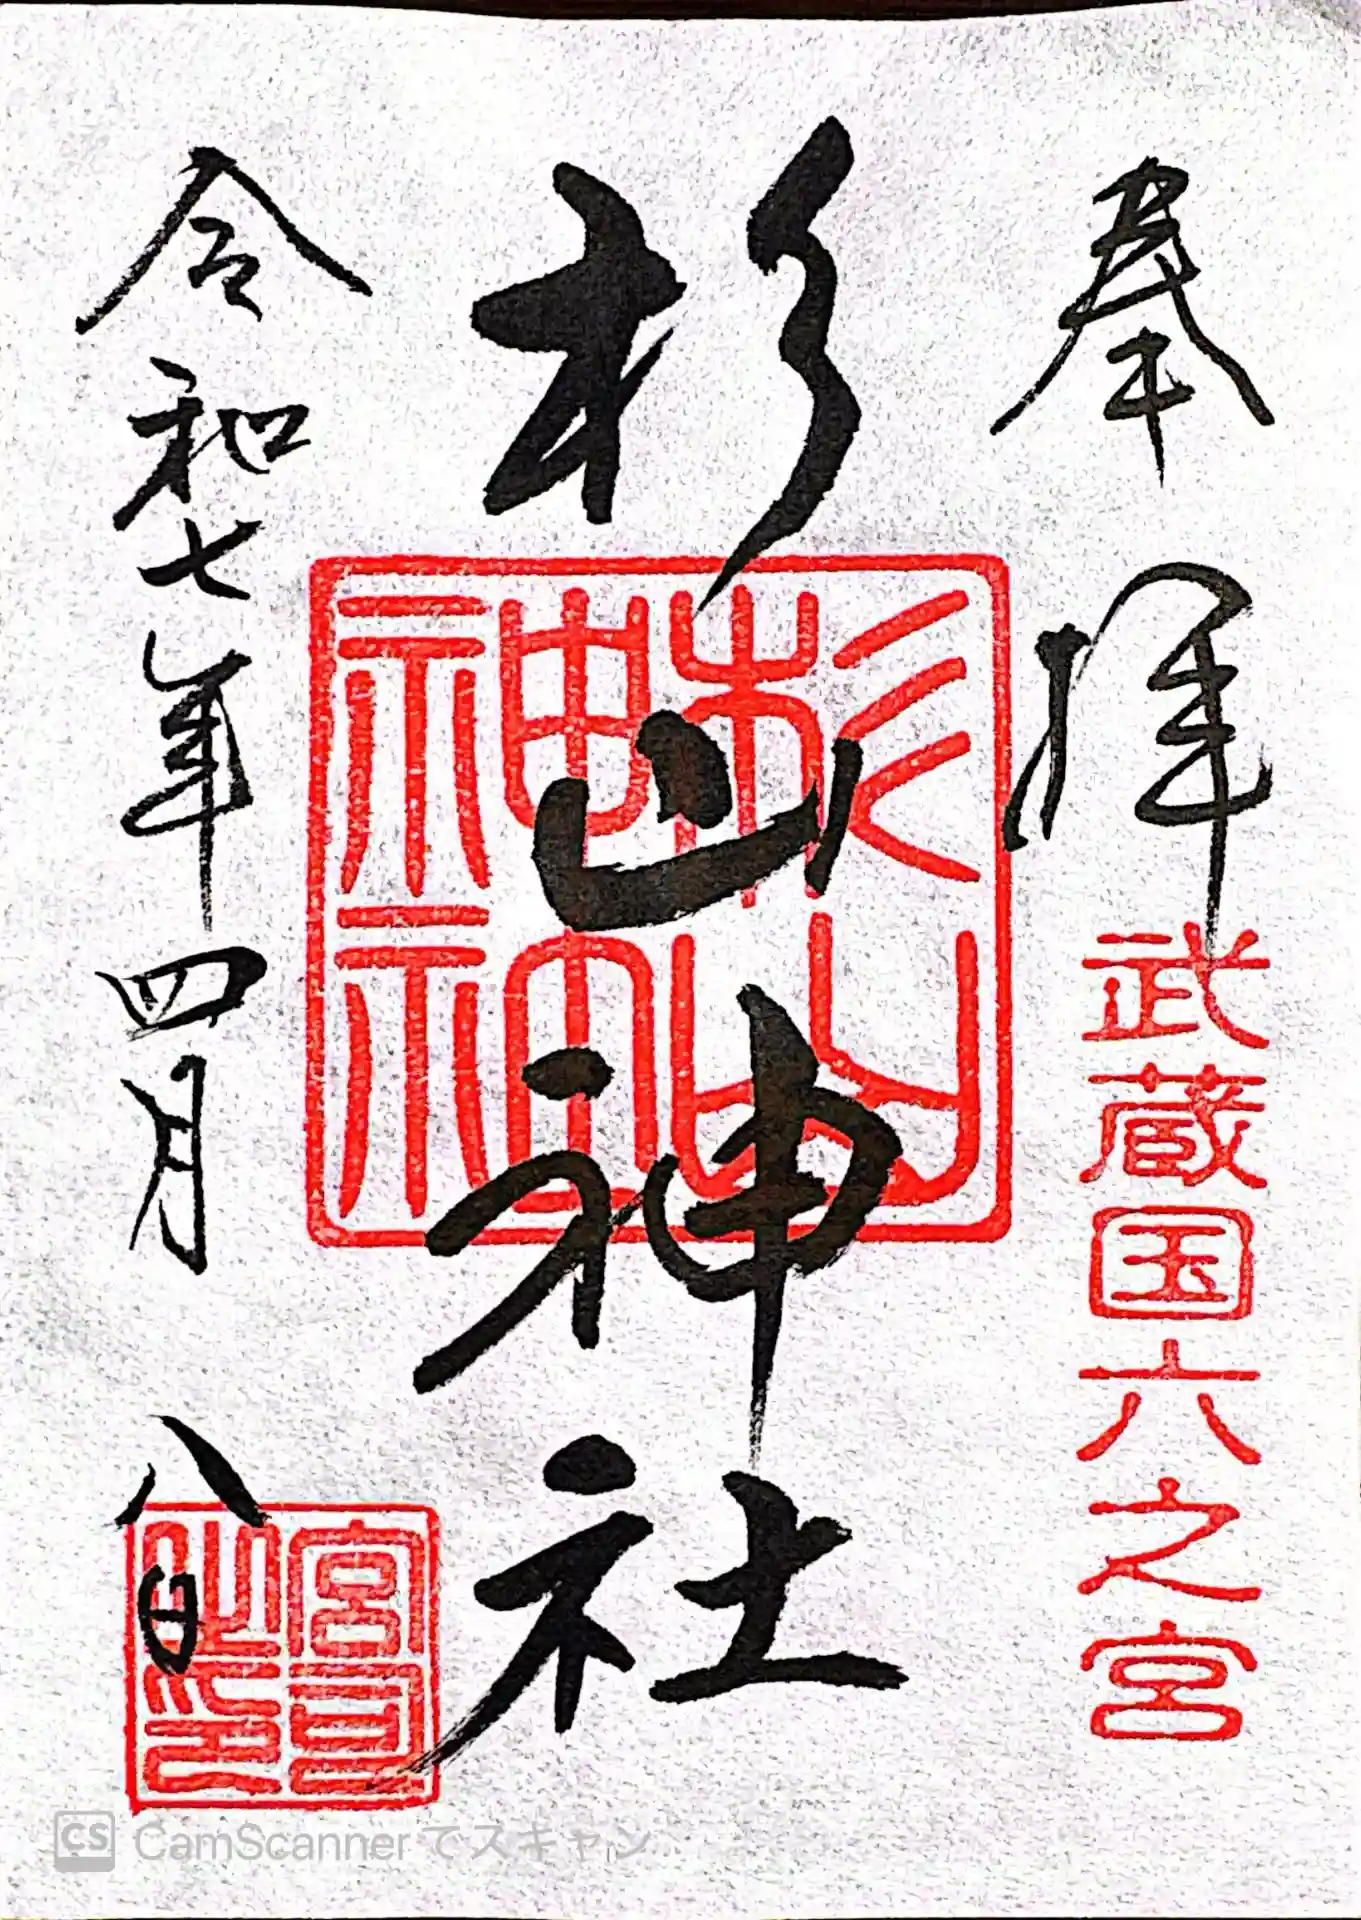 奉拝
武蔵国六之宮
杉山神社
杉山神社
令和七年四月八日
宮司之印
CS CamScanner でスキャン